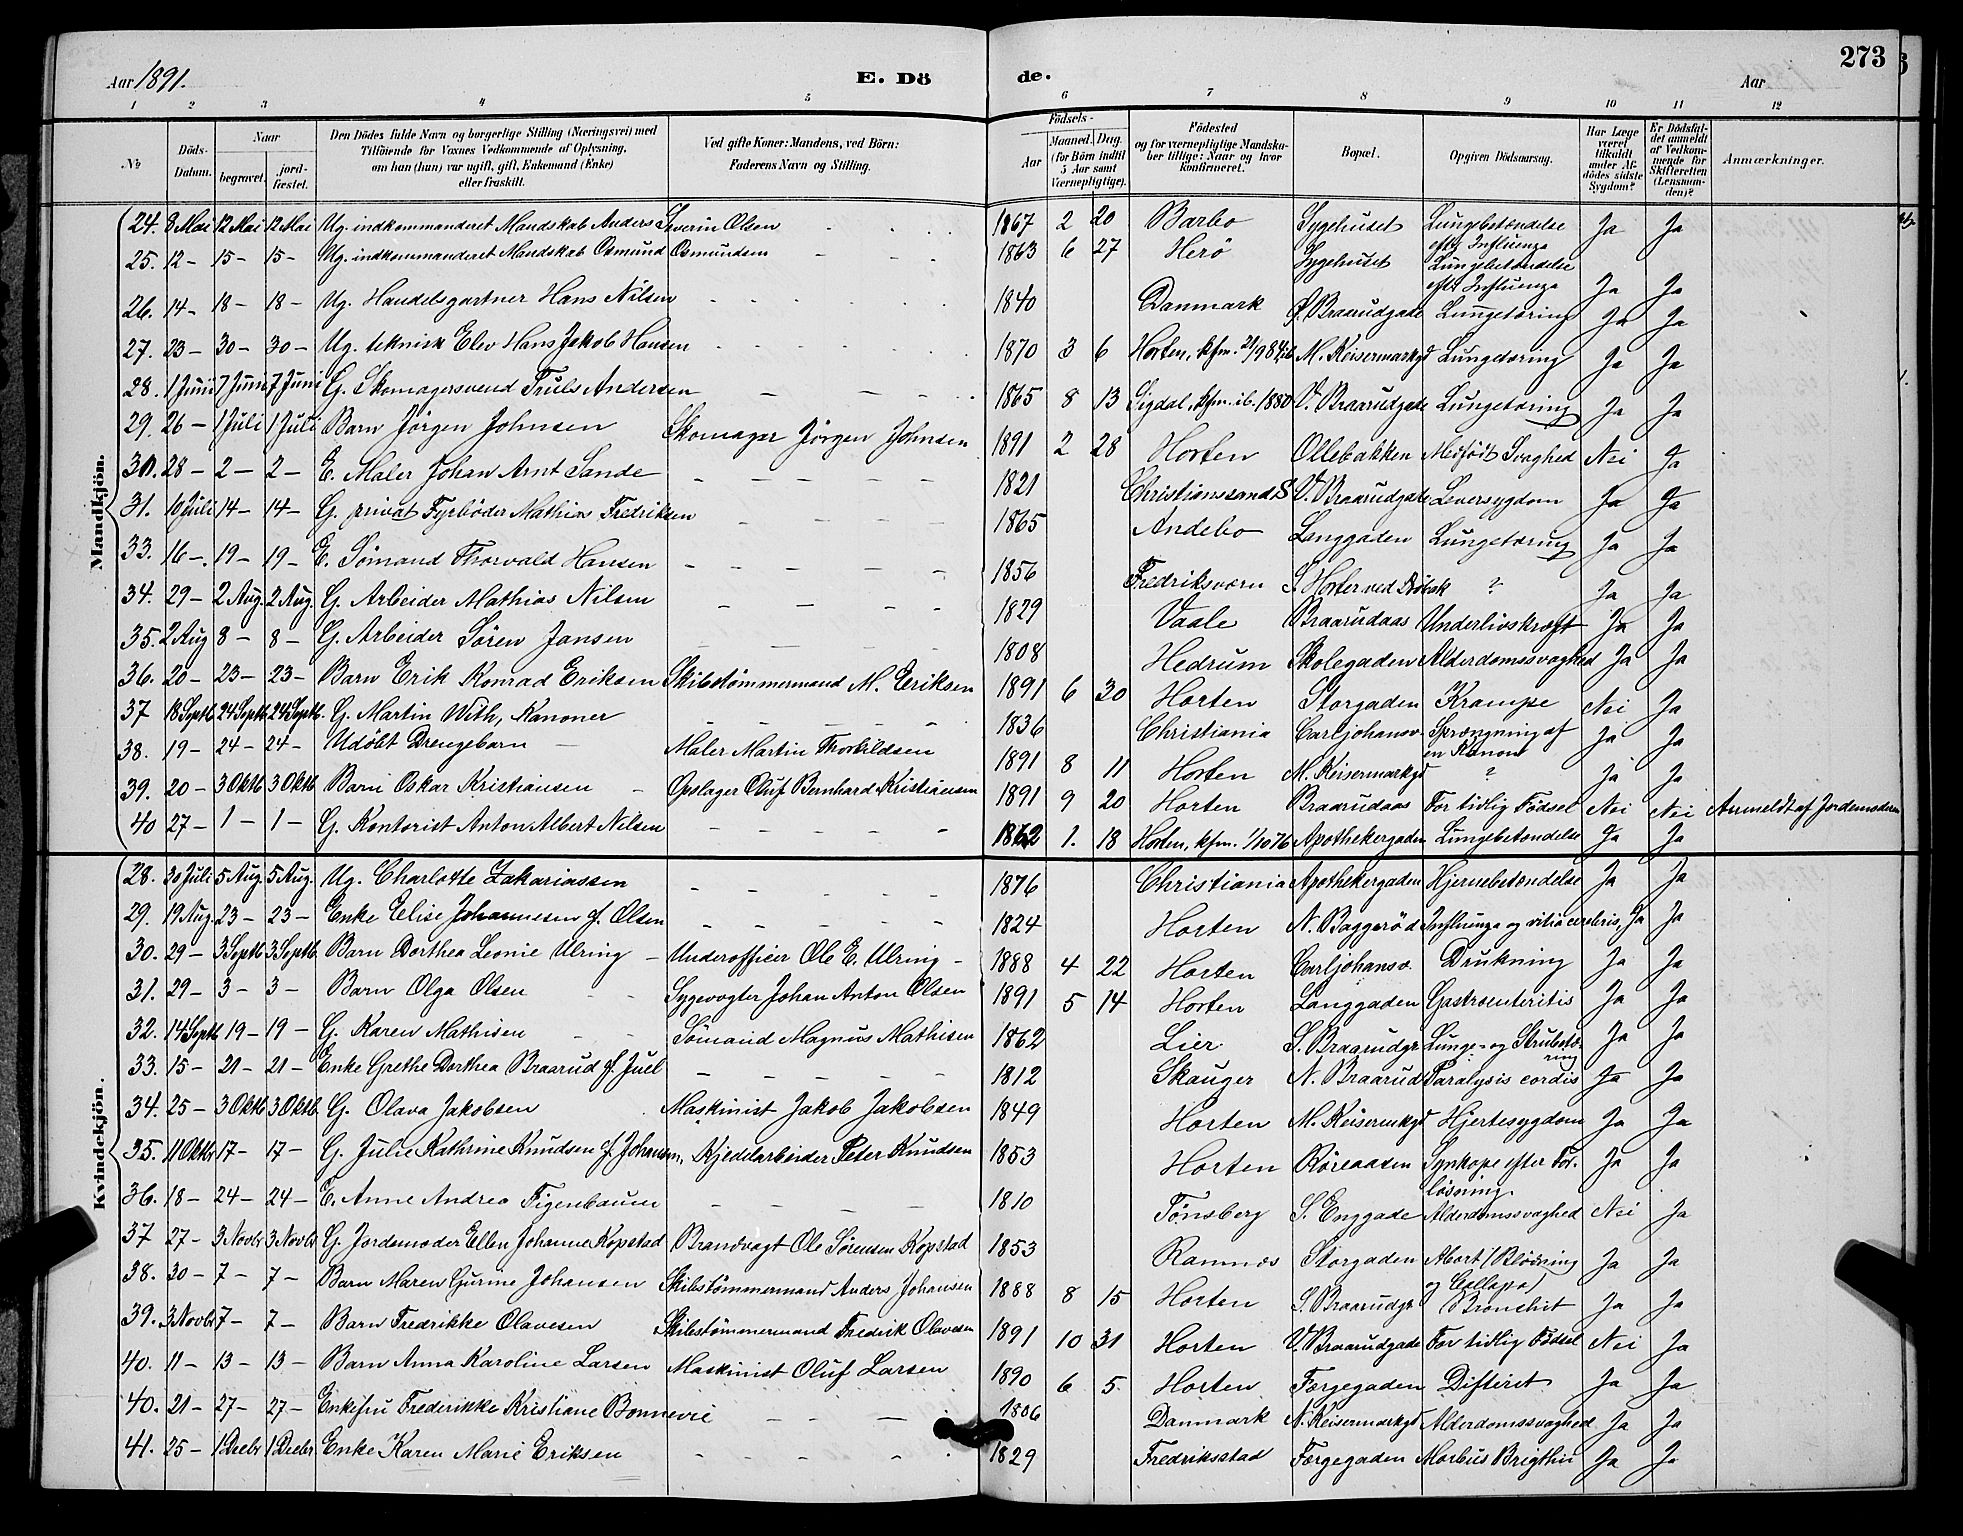 Aar 1891. E. Döde. Aar 273
1 2 3 4 5 6 7 8 9 10 11 12
No
Döds-Datum.
Naar
begravet.
jord-fæstet.
Den Dödes fulde Navn og borgerlige Stilling (Næringsvei) med
Tilföiende for Voxnes Vedkommende af Oplysning,
om han (hun) var ugift, gift, Enkemand (Enke)
eller fraskilt.
Ved gifte Koner: Mandens, ved Börn:
Faderens Navn og Stilling.
Födsels-
Aar
Maaned. Dag.
(for Börn indtil
5 Aar samt
Værnepligtige).
Födested
og for værnepligtige Mandska-
ber tillige: Naar og hvor
konfirmeret.
Bopæl.
Opgiven Dödsaarsag.
Har Læge
været
tilkaldt
under Af-
dödes sidste
Sygdom?
Er Dödsfal-
det anmeldt
af Vedkom-
mende for
Skifteretten
(Lensman-
den)?
Anmærkninger.
Mandkjön.
24. 8 Mai 12 Mai 12 Mai Ug. indkommanderet Mandskab Anders Severin Olsen 1867 2 20 Barbo Sygehuset Lungebetændelse efter Influenza Ja Ja
25. 12 – 15 – 15 – Ug. indkommanderet Mandskab Osmund Osmundsen 1863 6 27 Herö Sygehuset Lungebetændelse eft. Influenza Ja Ja
26. 14 – 18 – 18 – Ug. Handelsgartner Hans Nilsen 1840 Danmark Ø. Braarudgade Lungetæring Ja Ja
27. 23 – 30 – 30 – Ug. teknisk Elev Hans Jakob Hansen 1870 3 6 Horten, kfm. 21/9 84 M. Keisermarkgd Lungetæring Ja Ja
28. 1 Juni 7 Juni 7 Juni G. Skomagersvend Truls Andersen 1865 8 13 Sigdal, kfm. ib. 1880 V. Braarudgade Lungetæring Ja Ja
29. 26 – 1 Juli 1 Juli Barn Jörgen Johnsen Skomager Jörgen Johnsen 1891 2 28 Horten Ollebakken Medfödt Svaghed Nei Ja
30. 28 – 2 – 2 – E. Maler Johan Arnt Sande 1821 Christianssand S V. Braarudgade Leversygdom Ja Ja
31. 10 Juli 14 – 14 – G. privat Fyrböder Mathias Fredriksen 1865 Andebo Langgaden Lungetæring Ja Ja
33. 16 – 19 – 19 – E. Sömand Thorvald Hansen 1856 Fredriksværn S. Horten ved Dröbak ? Ja Ja
34. 29 – 2 Aug. 2 Aug. G. Arbeider Mathias Nilsen 1829 Vaale Braarudaas Underlivskræft Ja Ja
35. 2 Aug 8 – 8 – G. Arbeider Sören Jansen 1808 Hedrum Skolegaden Alderdomssvaghed Ja Ja
36. 20 – 23 – 23 – Barn Erik Konrad Eriksen Skibstömmermand M. Eriksen 1891 6 30 Horten Storgaden Krampe Nei Ja
37 18 Septb. 24 Septb. 24 Septb. G. Martin With, Kanoner 1836 Christiania Carljohansv. Sprængning af en Kanon Ja Ja
38. 19 – 24 – 24 – Udöbt Drengebarn – Maler Martin Thorkildsen 1891 8 11 Horten M. Keisermarkgd ? Ja Ja
39. 20 – 3 Oktb 3 Oktb Barn Oskar Kristiansen – Opslager Oluf Bernhard Kristiansen 1891 9 20 Horten Braarudaas For tidlig Födsel Nei Nei Anmeldt af Jordemoderen
40 27 – 1 – 1 – G. Kontorist Anton Albert Nilsen 1862 1. 18 Horten, kfm. 1/10 76 Apothekergaden Lungebetændelse Ja Ja
Kvindekjön.
28. 30 Juli 5 Aug. 5 Aug. Ug. Charlotte Zakariassen 1876 Christiania Apothekergaden Hjernebetændelse Ja Ja
29. 19 Aug. 23 – 23 – Enke Elise Johannesen f. Olsen 1824 Horten N. Baggeröd Influenza og vitia cerebris, Ja Ja
30. 29 – 3 Septb 3 Septb. Barn Dorthea Leonie Ulring – Underofficier Ole E. Ulring – 1888 4 22 Horten Carljohansv. Drukning Ja Ja
31. 29 – 3 – 3 – Barn Olga Olsen Sygevogter Johan Anton Olsen 1891 5 14 Horten Langgaden Gastroenteritis Ja Ja
32. 14 Septb 19 – 19 – G. Karen Mathisen Sömand Magnus Mathisen 1862 Lier S. Braarudgt Lunge- og Strubetæring Ja Ja
33. 15 – 21 – 21 – Enke Grethe Dorthea Braarud f. Juel 1812 Skauger N. Braarud Paralysis cordis Ja Ja
34. 25 – 3 Oktb 3 Oktb. G. Olava Jakobsen Maskinist Jakob Jakobsen 1849 Horten M. Keisermkgd Hjertesygdom Ja Ja
35. 11 Oktbr 17 – 17 – G. Julie Kathrine Knudsen f. Johansen, Kjedelarbeider Peter Knudsen 1853 Horten Röreaasen Synkope efter Forlösning. Ja Ja
36. 18 – 24 – 24 – E. Anne Andrea Figenbaum 1810 Tönsberg S. Enggade Alderdomssvaghed Nei Ja
37 27 – 3 Novbr 3 Novbr G. Jordemoder Ellen Johanne Kopstad Brandvagt Ole Sörensen Kopstad 1853 Ramnes Storgaden Abort (Blödning og Collaps) Ja Ja
38. 30 – 7 – 7 – Barn Maren Gurine Johansen Skibstömmermand Anders Johansen 1888 8 15 Horten S. Braarudgt Bronchit Ja Ja
39. 3 Novbr 7 – 7 – Barn Fredrikke Olavesen Skibstömmermand Frederik Olavesen 1891 10 31 Horten V. Braarudgade For tidlig Födsel Nei Ja
40. 11 – 13 – 13 – Barn Anna Karoline Larsen Maskinist Oluf Larsen 1890 6 5. Horten Færgegaden Difterit Ja Ja
40. 21 – 27 – 27 – Enkefru Frederikke Kristiane Bonnevie 1806 Danmark N. Keisermarkgd Alderdomssvaghed Ja Ja
41. 25 – 1 Decbr 1 Decbr Enke Karen Marie Eriksen 1829 Fredriksstad Færgegaden Morbus Brigthii Ja Ja